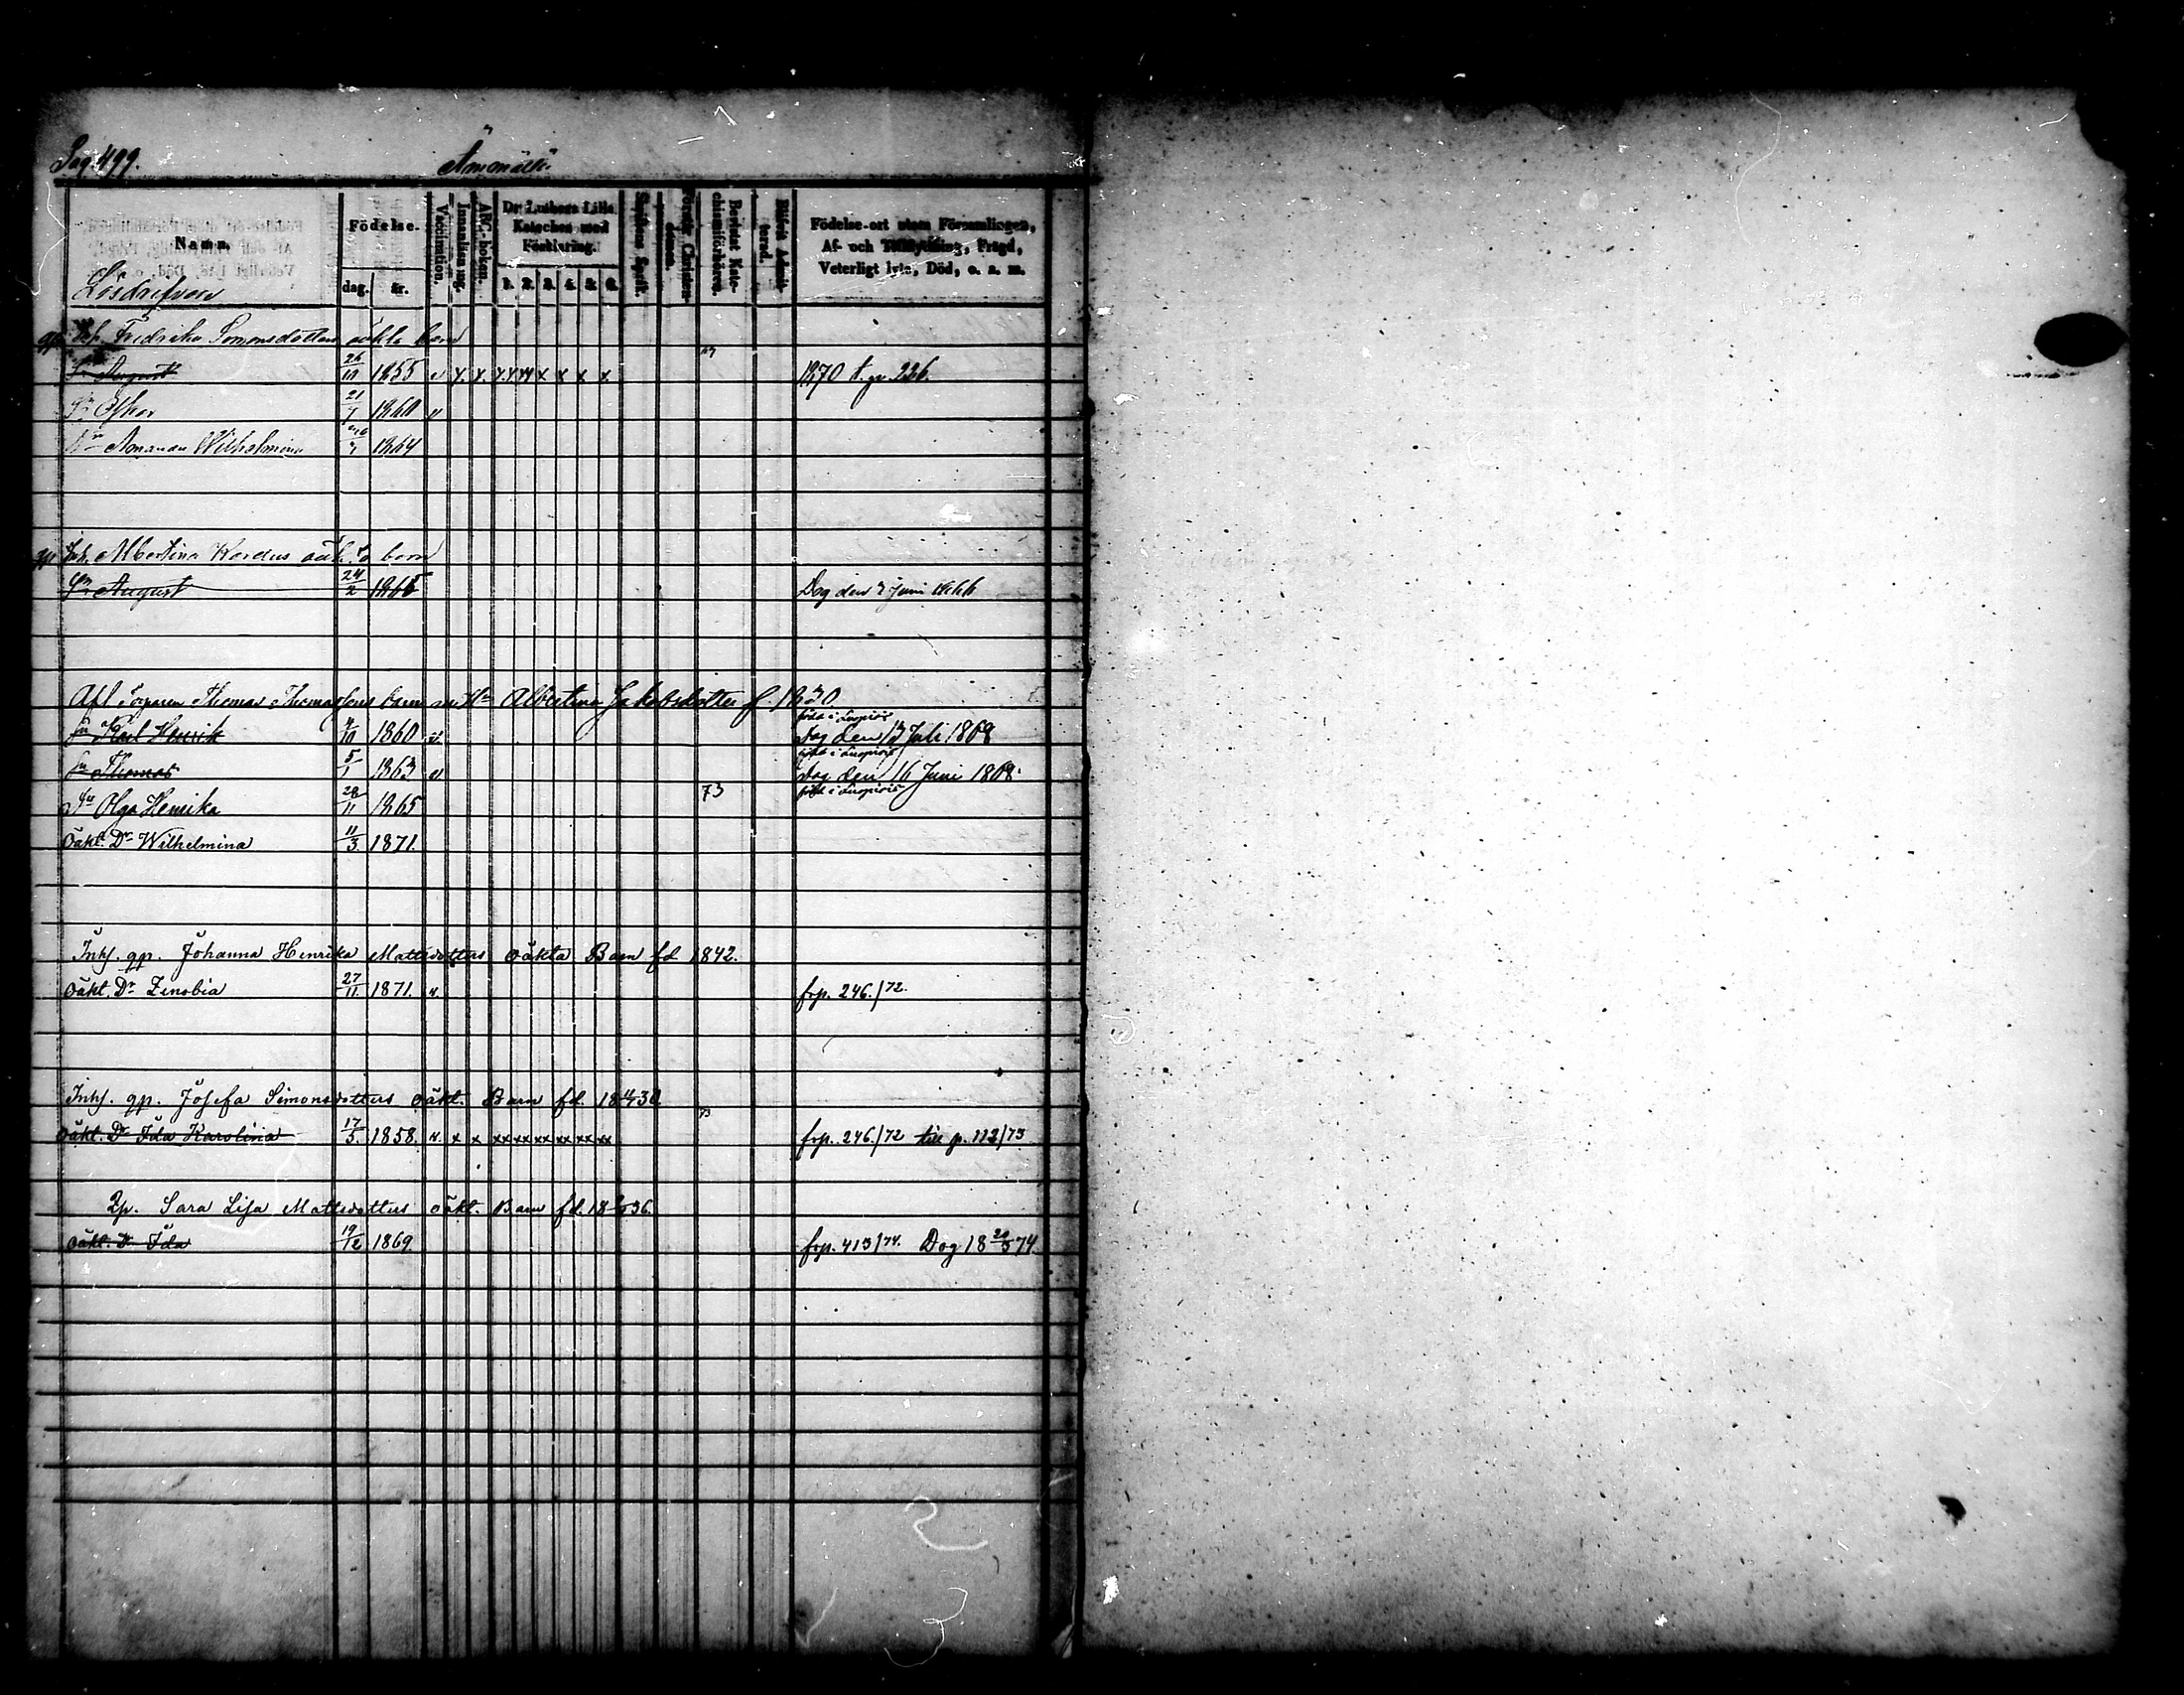 Pag. 499.
Ämmälä.
Namn.
Födelse.
dag. år.
Vaccination.
Innanläsning.
ABC-boken.
Dr. Luthers Lilla Kateches med Förklaring.
1. 2. 3. 4. 5. 6.
Skriftens Språk.
Förstår Christendomen.
Bevistat Katechismiförhören.
Blifvit Admitterad.
Födelse-ort utom Församlingen,
Af- och Tillflyttning, Frägd,
Veterligt lyte, Död, o. s. m.
Lösdrifvare
qp. Inh. Fredrika Simonsdotters oäkta barn
Sn August 26/10 1855 v x. x. x.x xx x x x x. 1870 t. p. 226.
Sn Oskar 21/7 1860 v
Dr Amanda Wilhelmina 1864
qp Inh. Albertina oäkta barn
Sn August 24/2 1865 Dog den 7 Juni 1866
Afl. Torparen Thomas Thomassons barn m. Hu Albertina Jakobsdotter f. 1830
Sn Karl Henrik 4/10 1860 v. född i
Dog den 13 Juli 1868
Sn Thomas 5/1 1863 v född i
Dog den 16 Juni 1868.
Dr Olga Henrika 28/11 1865 73 född i
Oäkt. Dr Wilhelmina 11/3 1871.
Inhs. qp. Johanna Henrika Mattsdotters oäkta Barn fd 1842.
Oäkt. Dr Zenobia 27/11. 1871. v. frp. 246./72.
Inhs. qp. Josefa Simonsdotters oäkt. Barn fd. 18 4/4 30
73
Oäkt. Dr Ida Karolina 17/5. 1858. v. x x xx xx xx xx xx xx frp. 246./72 till p. 112/73
Qp. Sara Lisa Mattsdotters oäkt. Barn fd. 36.
Oäkt. Dr Ida 19/12 1869. frp. 413/74. Dog 18 20/3 74.